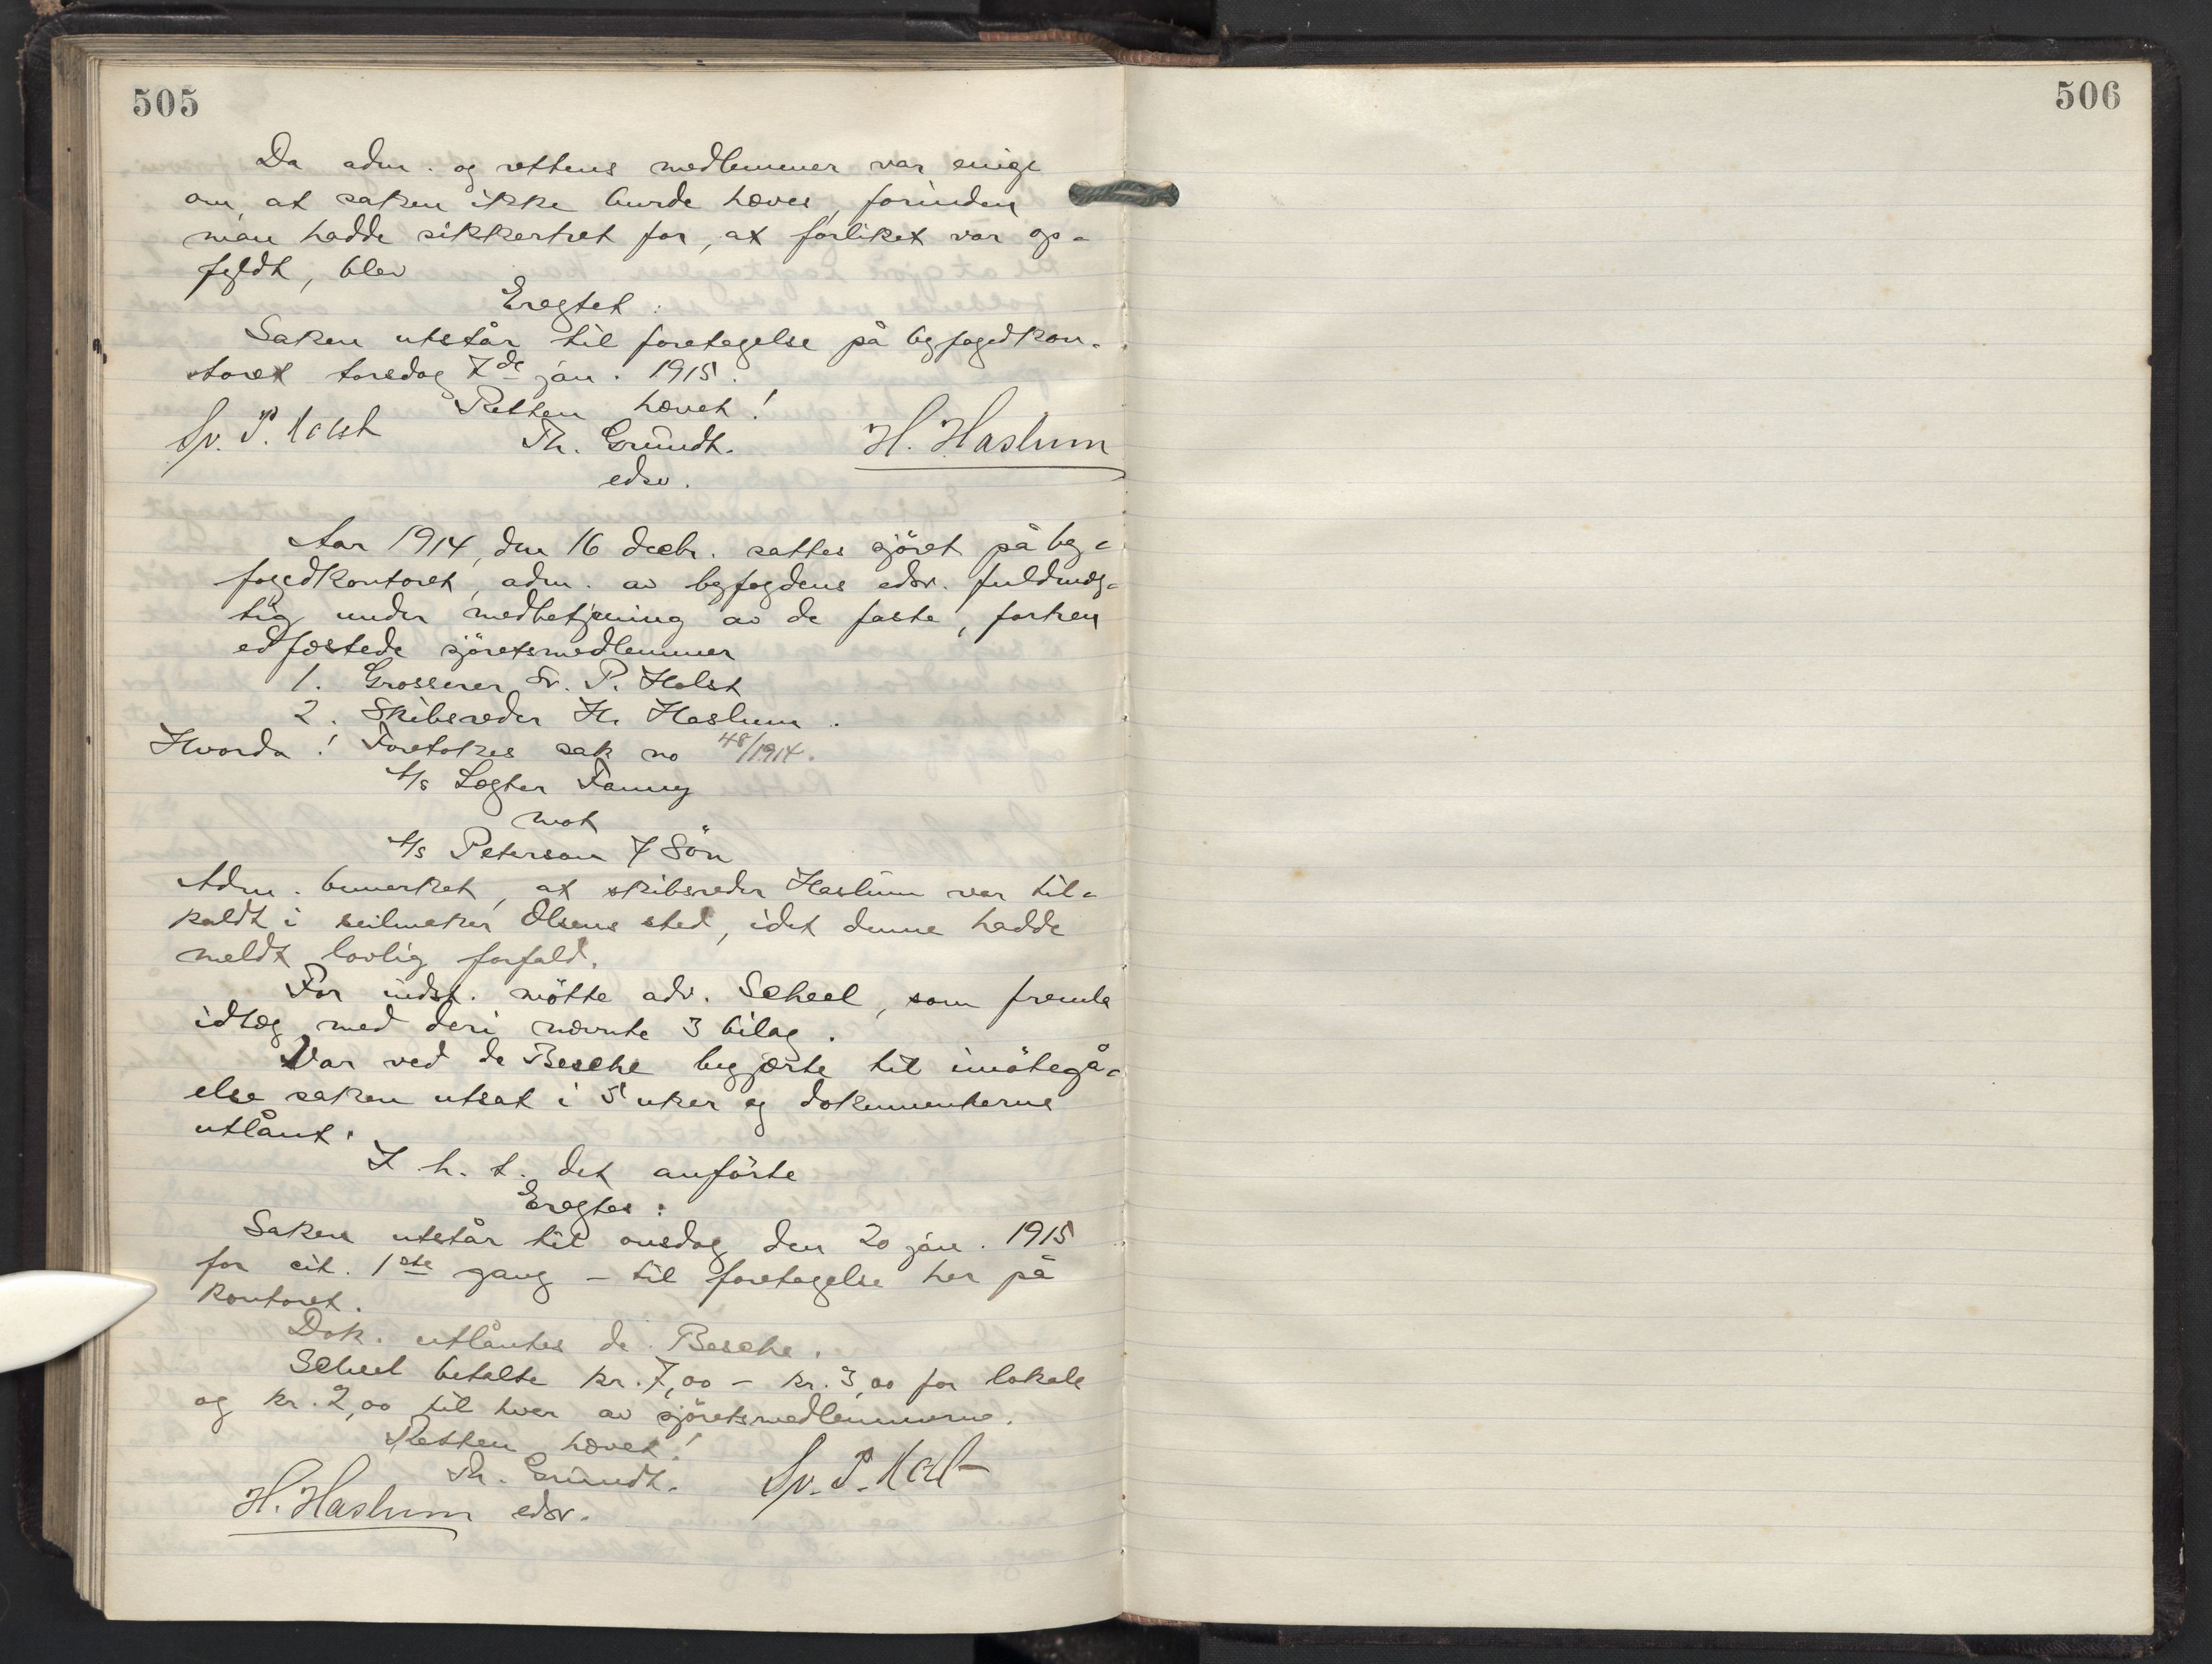 505
Da adm. og rettens medlemmer var enige
om, at saken ikke burde hæves, forinden
man hadde sikkerhet for, at forliket var op-
fyldt, blev
Eragtet:
Saken utstår til foretagelse på byfogedkon-
toret torsdag 7de jan. 1915.
Retten hævet!
Sv. P. Holst Th. Grundt. H. Haslum
edsv.
Aar 1914, den 16 decbr. sattes sjöret på by-
fogedkontoret, adm. av byfogdens edsv. fuldmæg-
tig under medbetjening av de faste, forhen
edfæstede sjöretsmedlemmer
1. Grosserer Sv. P. Holst
2. Skibsreder H. Haslum.
Hvorda! Foretokes sak no 48/1914.
A/s Lægter Fanny
mot
A/s Peterson & Sön
Adm. bemerket, at skibsreder Haslum var til-
kaldt i seilmaker Olsens sted, idet denne hadde
meldt lovlig forfald.
For indst. mötte adv. Scheel, som fremla
idlæg med deri nævnte 3 bilag.
Var ved de Besche begjærte til imötegå-
else saken utsat i 5 uker og dokumenterne
utlånt.
I h. t. det anförte
Eragtes:
Saken utstår til onsdag den 20 jan. 1915
for cit. 1ste gang – til foretagelse her på
kontoret.
Dok. utlåntes de Besche.
Scheel betalte kr. 7,00 – kr. 3,00 for lokale
og kr. 2,00 til hver av sjöretsmedlemmerne.
Retten hævet!
Th. Grundt. Sv. P. Holst
H. Haslum edsv.
506